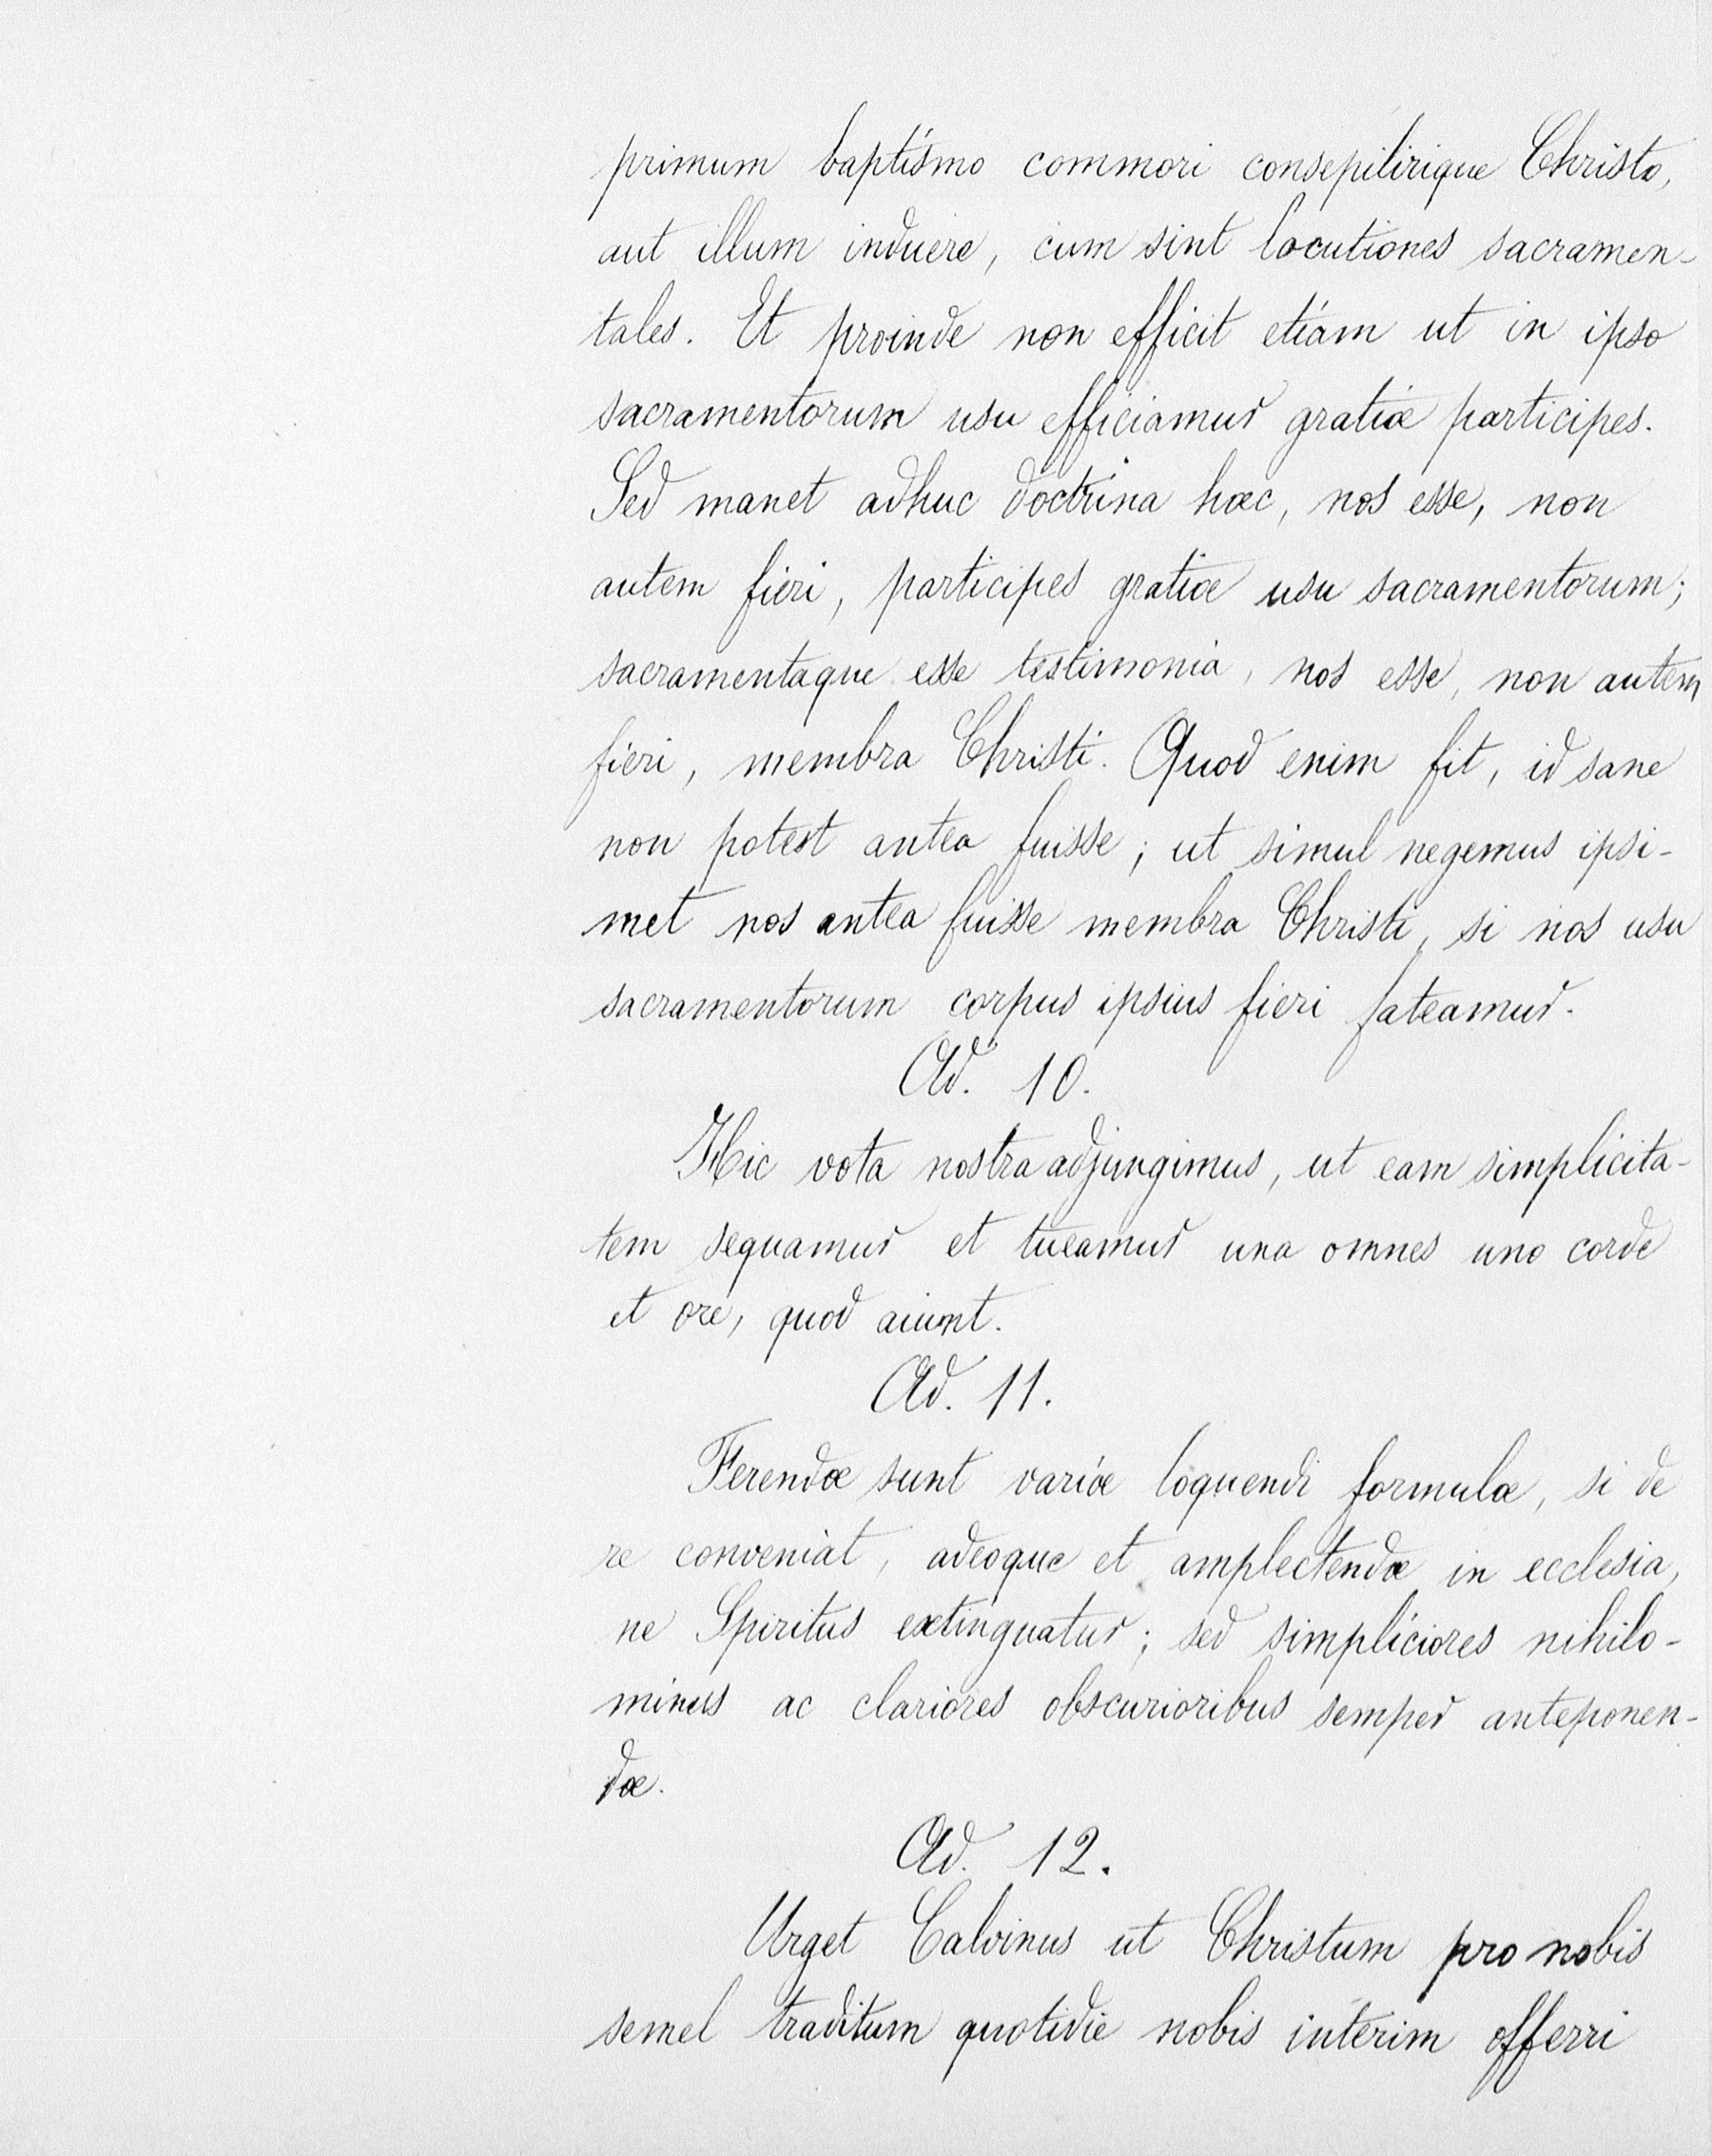 primum baptismo commori consepilirique Christo,
aut illum induere, cum sint locutiones sacramen-
tales. Et proinde non efficit etiam ut in ipso
sacramentorum usu efficiamur gratiæ participes.
Sed manet adhuc doctrina hæc, nos esse, non
autem fieri, participes gratiæ usu sacramentorum;
sacramentaque esse testimonia, nos esse, non autem
fieri, membra Christi. Quod enim fit, id sane
non potest antea fuisse; ut simul negemus ipsi-
met nos antea fuisse membra Christi, si nos usu
sacramentorum corpus ipsius fieri fateamur.
Ad. 10.
Hic vota nostra adjungimus, ut eam simplicita-
tem sequamur et tueamur una omnes uno corde
et ore, quod aiunt.
Ad. 11.
Ferendæ sunt variæ loquendi formulæ, si de
re conveniat, adeoque et amplectendæ in ecclesia,
ne Spiritus extinguatur; sed simpliciores nihilo-
minus ac clariores obscurioribus semper anteponen-
dæ.
Ad. 12.
Urget Calvinus ut Christum pro nobis
semel traditum quotidie nobis interim offerri